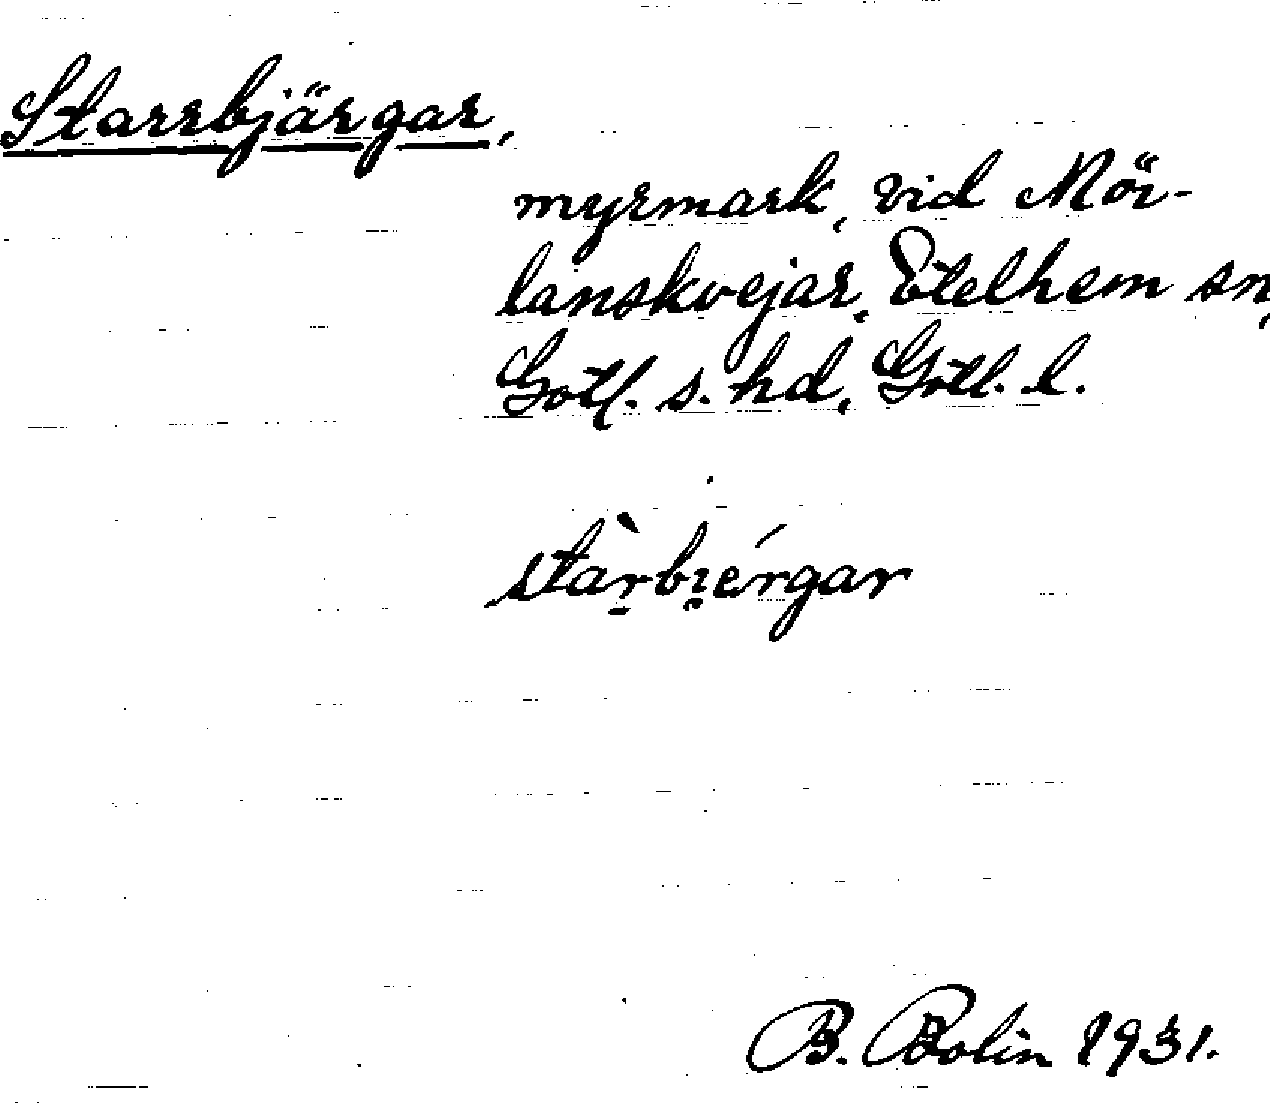 Starrbjärgar,
myrmark, vid Mör-
lanskvejar, Etelhem sn,
Gotl. s. hd, Gotl. l.
stàr̠bi̯érgar
B. Bolin 1931.